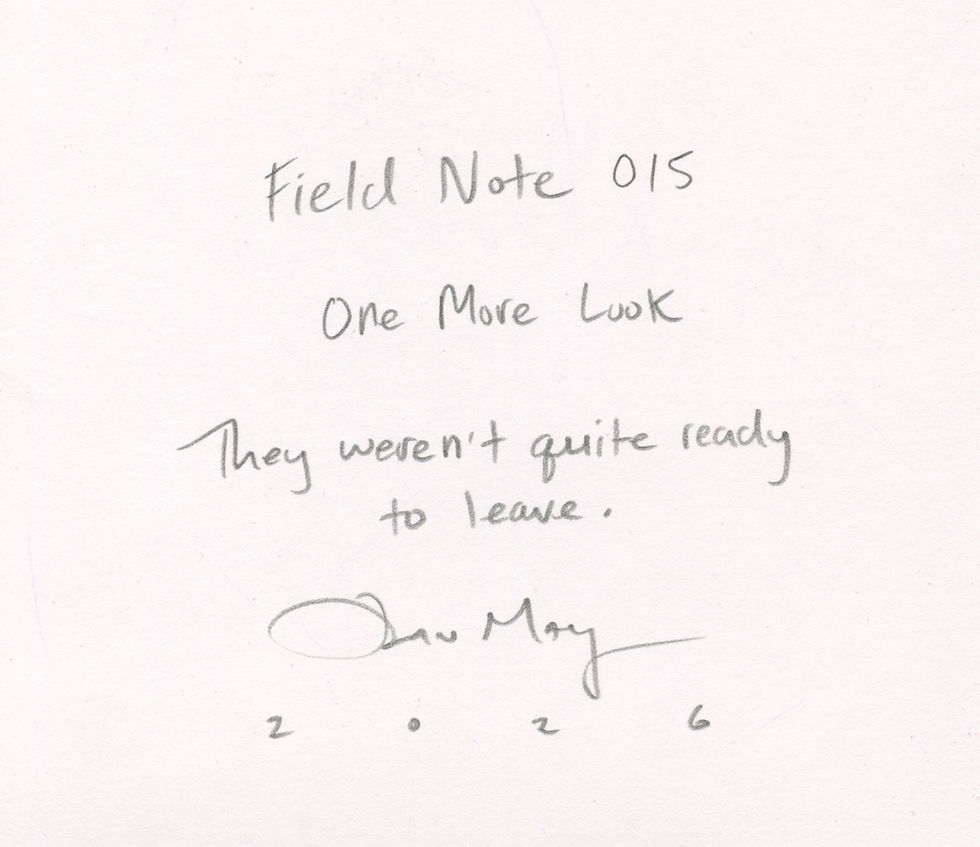 Field Note 015
One More Look
They weren't quite ready
to leave.
Dan May
2026